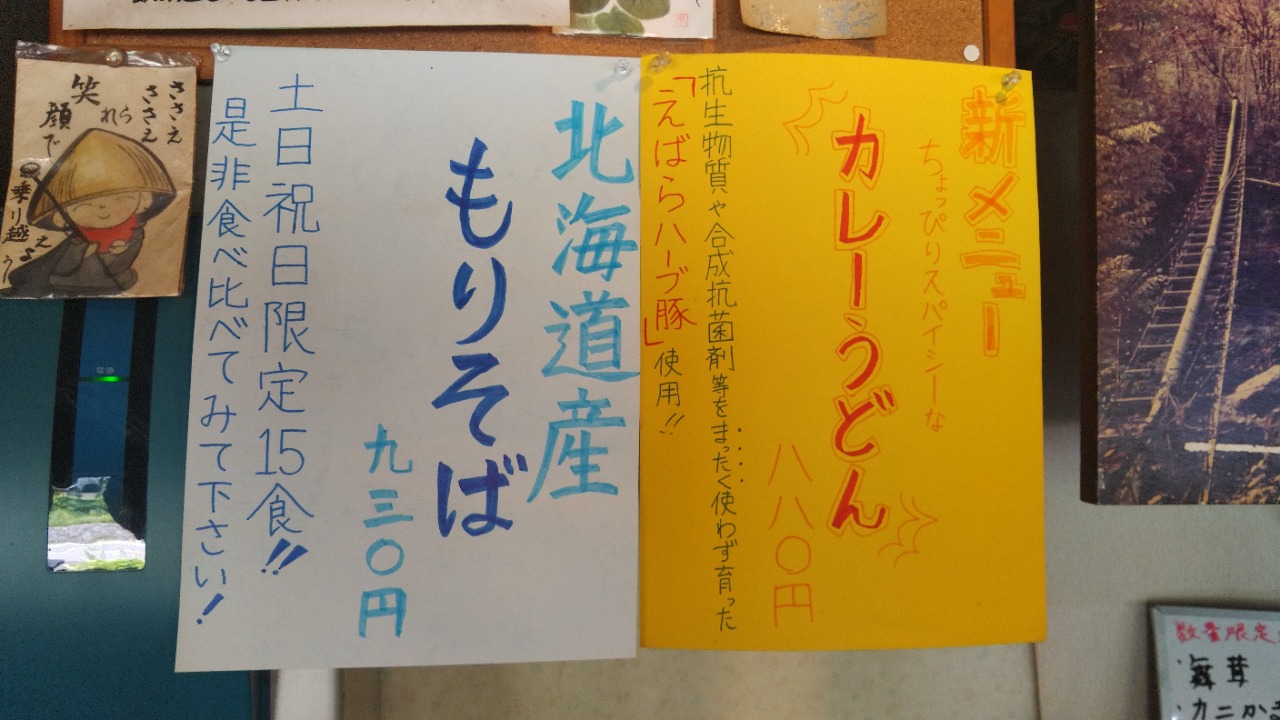 新メニュー
ちょっぴりスパイシーな
カレーうどん
八八〇円
抗生物質や合成抗菌剤等をまったく使わず育った
「えばらハーブ豚」使用!!
北海道産
もりそば
九三〇円
土日祝日限定15食!!
是非食べ比べてみて下さい!
ささえ
ささえ
られ
笑
顔で
乗り越
えよう
電源
数量限定
・舞茸
・カニかま